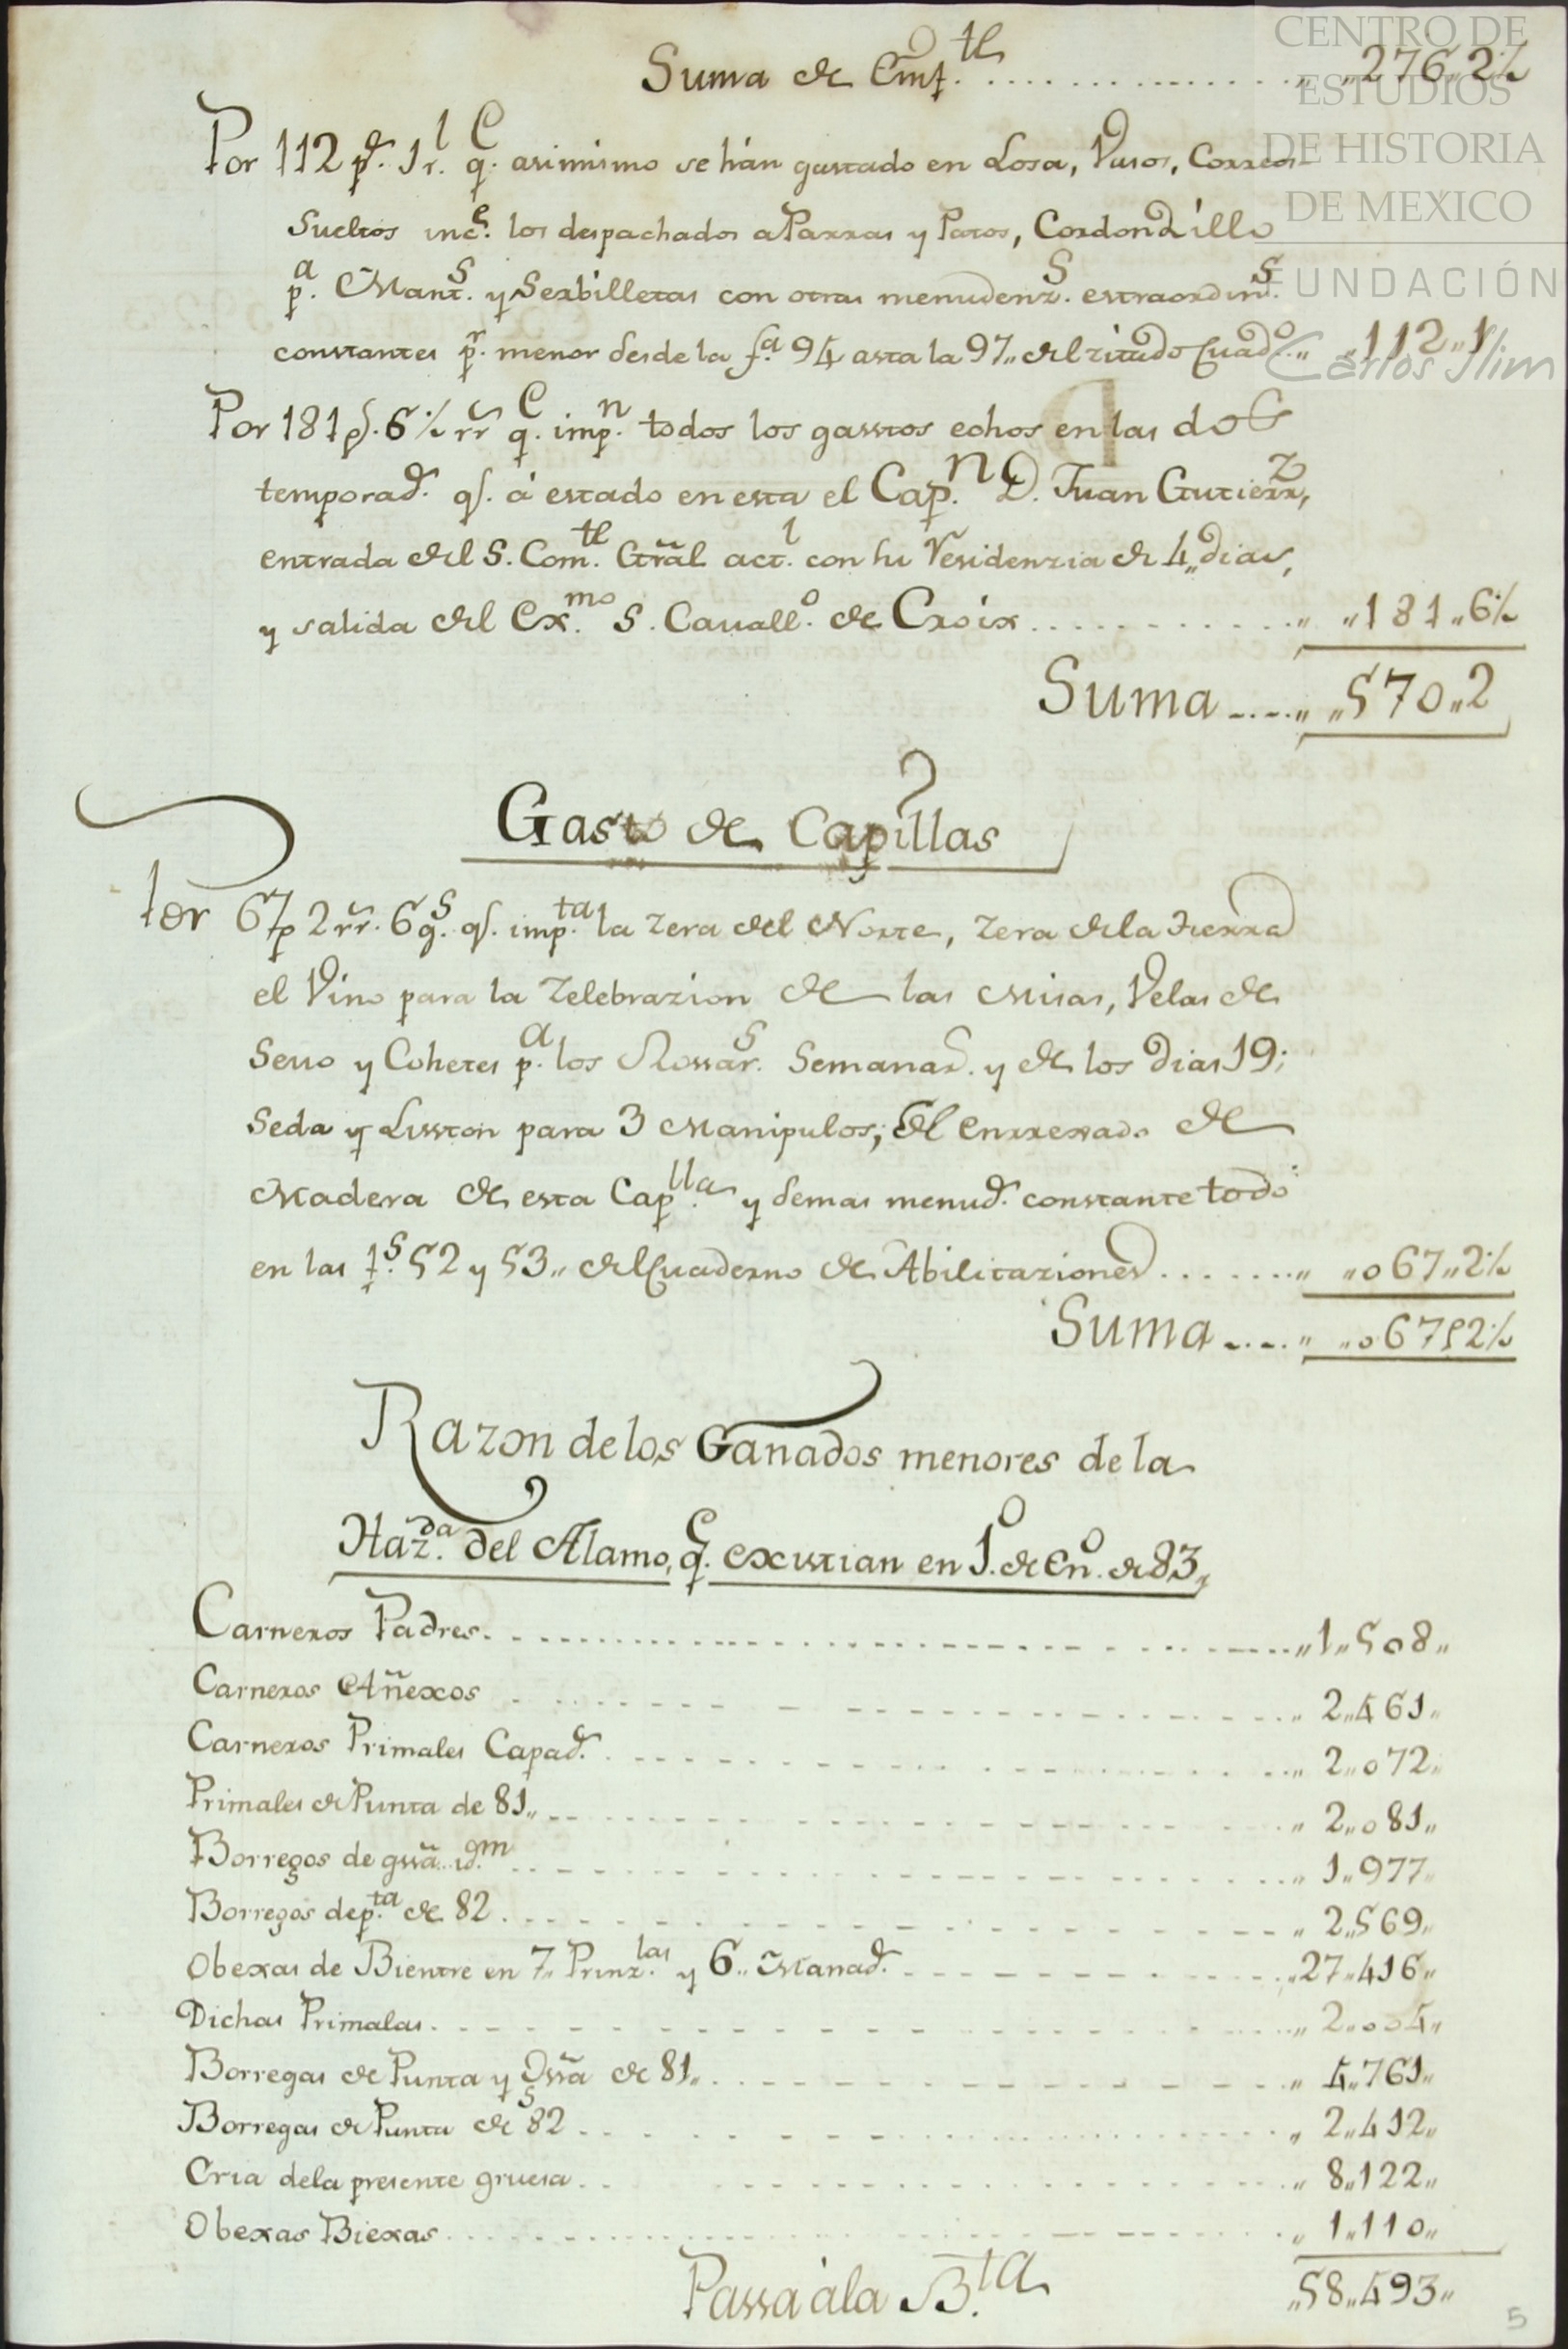 CENTRO DE
ESTUDIOS
DE HISTORIA
DE MEXICO
FUNDACIÓN
Carlos Slim
Suma de Emf.te ............ „ „276„2½
Por 112 ps. 1 rl. qe. asimismo se hán gastado en Losa, Vasos, Correos
Sueltos incs. los despachados a Parras y Patos, Cordondillo
pa. Mants. y Serbilletas con otras menudenzs. estraordins.
constantes pr. menor desde la fa. 94 asta la 97„ del zitado Cuado. „ „112„1
Por 181 ps. 6½ rr qe. impn. todos los gasstos echos en las dos
temporads. qs. á estado en esta el Capn. D. Juan Gutierrz,
entrada del S. Comte. Gtrãl actl. con su Residenzia de 4„ dias,
y salida del Exmo. S. Cavallo. de Croix ............ „ „181„6½
Suma ..... „ „570„2
Gasto de Capillas
Por 67p 2 rr. 6 gs. qs. impta. la zera del Norte, zera de la tierra
el Vino para la zelebrazion de las Misas, Velas de
Sevo y Cohetes pa. los Rossars. Semanar. y de los dias 19;
Seda y Lisston para 3 Manipulos; el enrrexado de
Madera de esta Caplla. y demas menuds. constante todo
en las fs. 52 y 53„ del Cuaderno de Abilitaziones ....... „ „067„2½
Suma ..... „ „067„2½
Razon de los Ganados menores de la
Hazda. del Alamo, qe. exsistian en 1o. de Eno. de 83„
Carneros Padres. ............ „1„508„
Carneros Añexos ............ „ 2„461„
Carneros Primales Capads. ............ „ 2„072„
Primales de Punta de 81„ ............ „ 2„081„
Borregos de gssã. idm. ............ „ 1„977„
Borregos de pta. de 82 ............ „ 2„569„
Obexas de Bientre en 7„ Prinzlas. y 6„ Manads. ............ „27„416„
Dichas Primalas. ............ „ 2„004„
Borregas de Punta y Gssã de 81„ ............ „ 4„761„
Borregas de Punta de 82 ............ „ 2„412„
Cria de la presente gruesa ............ „ 8„122„
Obexas Biexas ............ „ 1„110„
Passa á la Bta. „58„493„
5